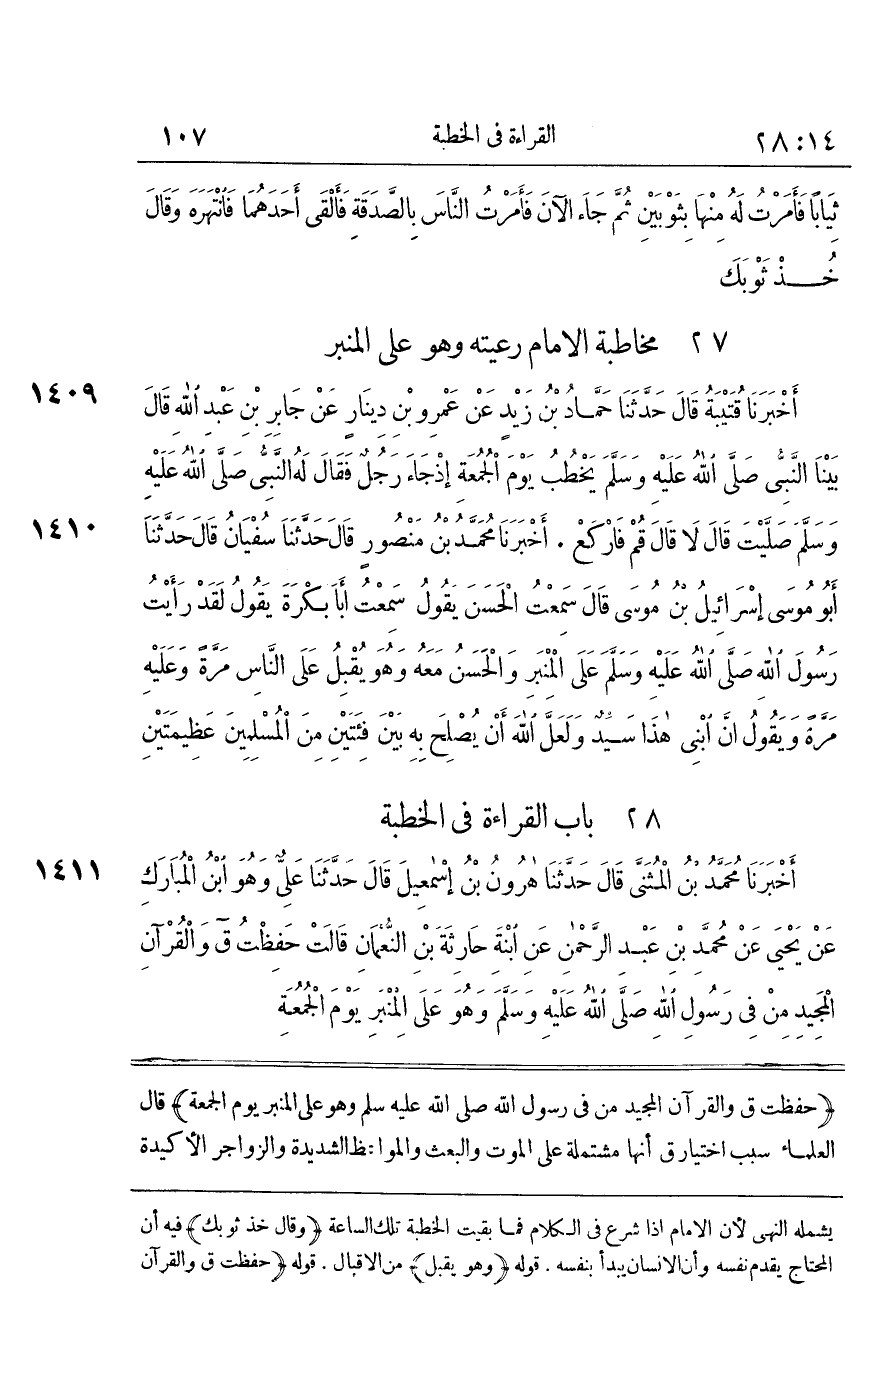 ٢٨:١٤ القراءة فى الخطبة ١٠٧
ثِيَابًا فَأَمَرْتُ لَهُ مِنْهَا بِثَوْبَيْنِ ثُمَّ جَاءَ الآنَ فَأَمَرْتُ النَّاسَ بِالصَّدَقَةِ فَأَلْقَى أَحَدَهُمَا فَانْتَهَرَهُ وَقَالَ
خُذْ ثَوْبَكَ
٢٧ مخاطبة الامام رعيته وهو على المنبر
١٤٠٩ أَخْبَرَنَا قُتَيْبَةُ قَالَ حَدَّثَنَا حَمَّادُ بْنُ زَيْدٍ عَنْ عَمْرِو بْنِ دِينَارٍ عَنْ جَابِرِ بْنِ عَبْدِ اللهِ قَالَ
بَيْنَا النَّبِىُّ صَلَّى اللهُ عَلَيْهِ وَسَلَّمَ يَخْطُبُ يَوْمَ الْجُمُعَةِ إِذْ جَاءَ رَجُلٌ فَقَالَ لَهُ النَّبِىُّ صَلَّى اللهُ عَلَيْهِ
١٤١٠ وَسَلَّمَ صَلَّيْتَ قَالَ لَا قَالَ قُمْ فَارْكَعْ . أَخْبَرَنَا مُحَمَّدُ بْنُ مَنْصُورٍ قَالَ حَدَّثَنَا سُفْيَانُ قَالَ حَدَّثَنَا
أَبُو مُوسَى إِسْرَائِيلُ بْنُ مُوسَى قَالَ سَمِعْتُ الْحَسَنَ يَقُولُ سَمِعْتُ أَبَا بَكْرَةَ يَقُولُ لَقَدْ رَأَيْتُ
رَسُولَ اللهِ صَلَّى اللهُ عَلَيْهِ وَسَلَّمَ عَلَى الْمِنْبَرِ وَالْحَسَنُ مَعَهُ وَهُوَ يُقْبِلُ عَلَى النَّاسِ مَرَّةً وَعَلَيْهِ
مَرَّةً وَيَقُولُ انَّ ابْنِى هٰذَا سَيِّدٌ وَلَعَلَّ اللهَ أَنْ يُصْلِحَ بِهِ بَيْنَ فِئَتَيْنِ مِنَ الْمُسْلِمِينَ عَظِيمَتَيْنِ
٢٨ باب القراءة فى الخطبة
١٤١١ أَخْبَرَنَا مُحَمَّدُ بْنُ الْمُثَنَّى قَالَ حَدَّثَنَا هٰرُونُ بْنُ إِسْمٰعِيلَ قَالَ حَدَّثَنَا عَلِىٌّ وَهُوَ ابْنُ الْمُبَارَكِ
عَنْ يَحْيَى عَنْ مُحَمَّدِ بْنِ عَبْدِ الرَّحْمٰنِ عَنِ ابْنَةِ حَارِثَةَ بْنِ النُّعْمَانِ قَالَتْ حَفِظْتُ قٓ وَالْقُرْآنِ
الْمَجِيدِ مِنْ فِى رَسُولِ اللهِ صَلَّى اللهُ عَلَيْهِ وَسَلَّمَ وَهُوَ عَلَى الْمِنْبَرِ يَوْمَ الْجُمُعَةِ
﴿حفظت ق والقرآن المجيد من فى رسول الله صلى الله عليه سلم وهو على المنبر يوم الجمعة﴾ قال
العلماء سبب اختيار ق أنها مشتملة على الموت والبعث والمواعظ الشديدة والزواجر الأكيدة
يشمله النهى لأن الامام اذا شرع فى الكلام فما بقيت الخطبة تلك الساعة ﴿وقال خذ ثوبك﴾ فيه أن
المحتاج يقدم نفسه وأن الانسان يبدأ بنفسه . قوله ﴿وهو يقبل﴾ من الاقبال . قوله ﴿حفظت ق والقرآن